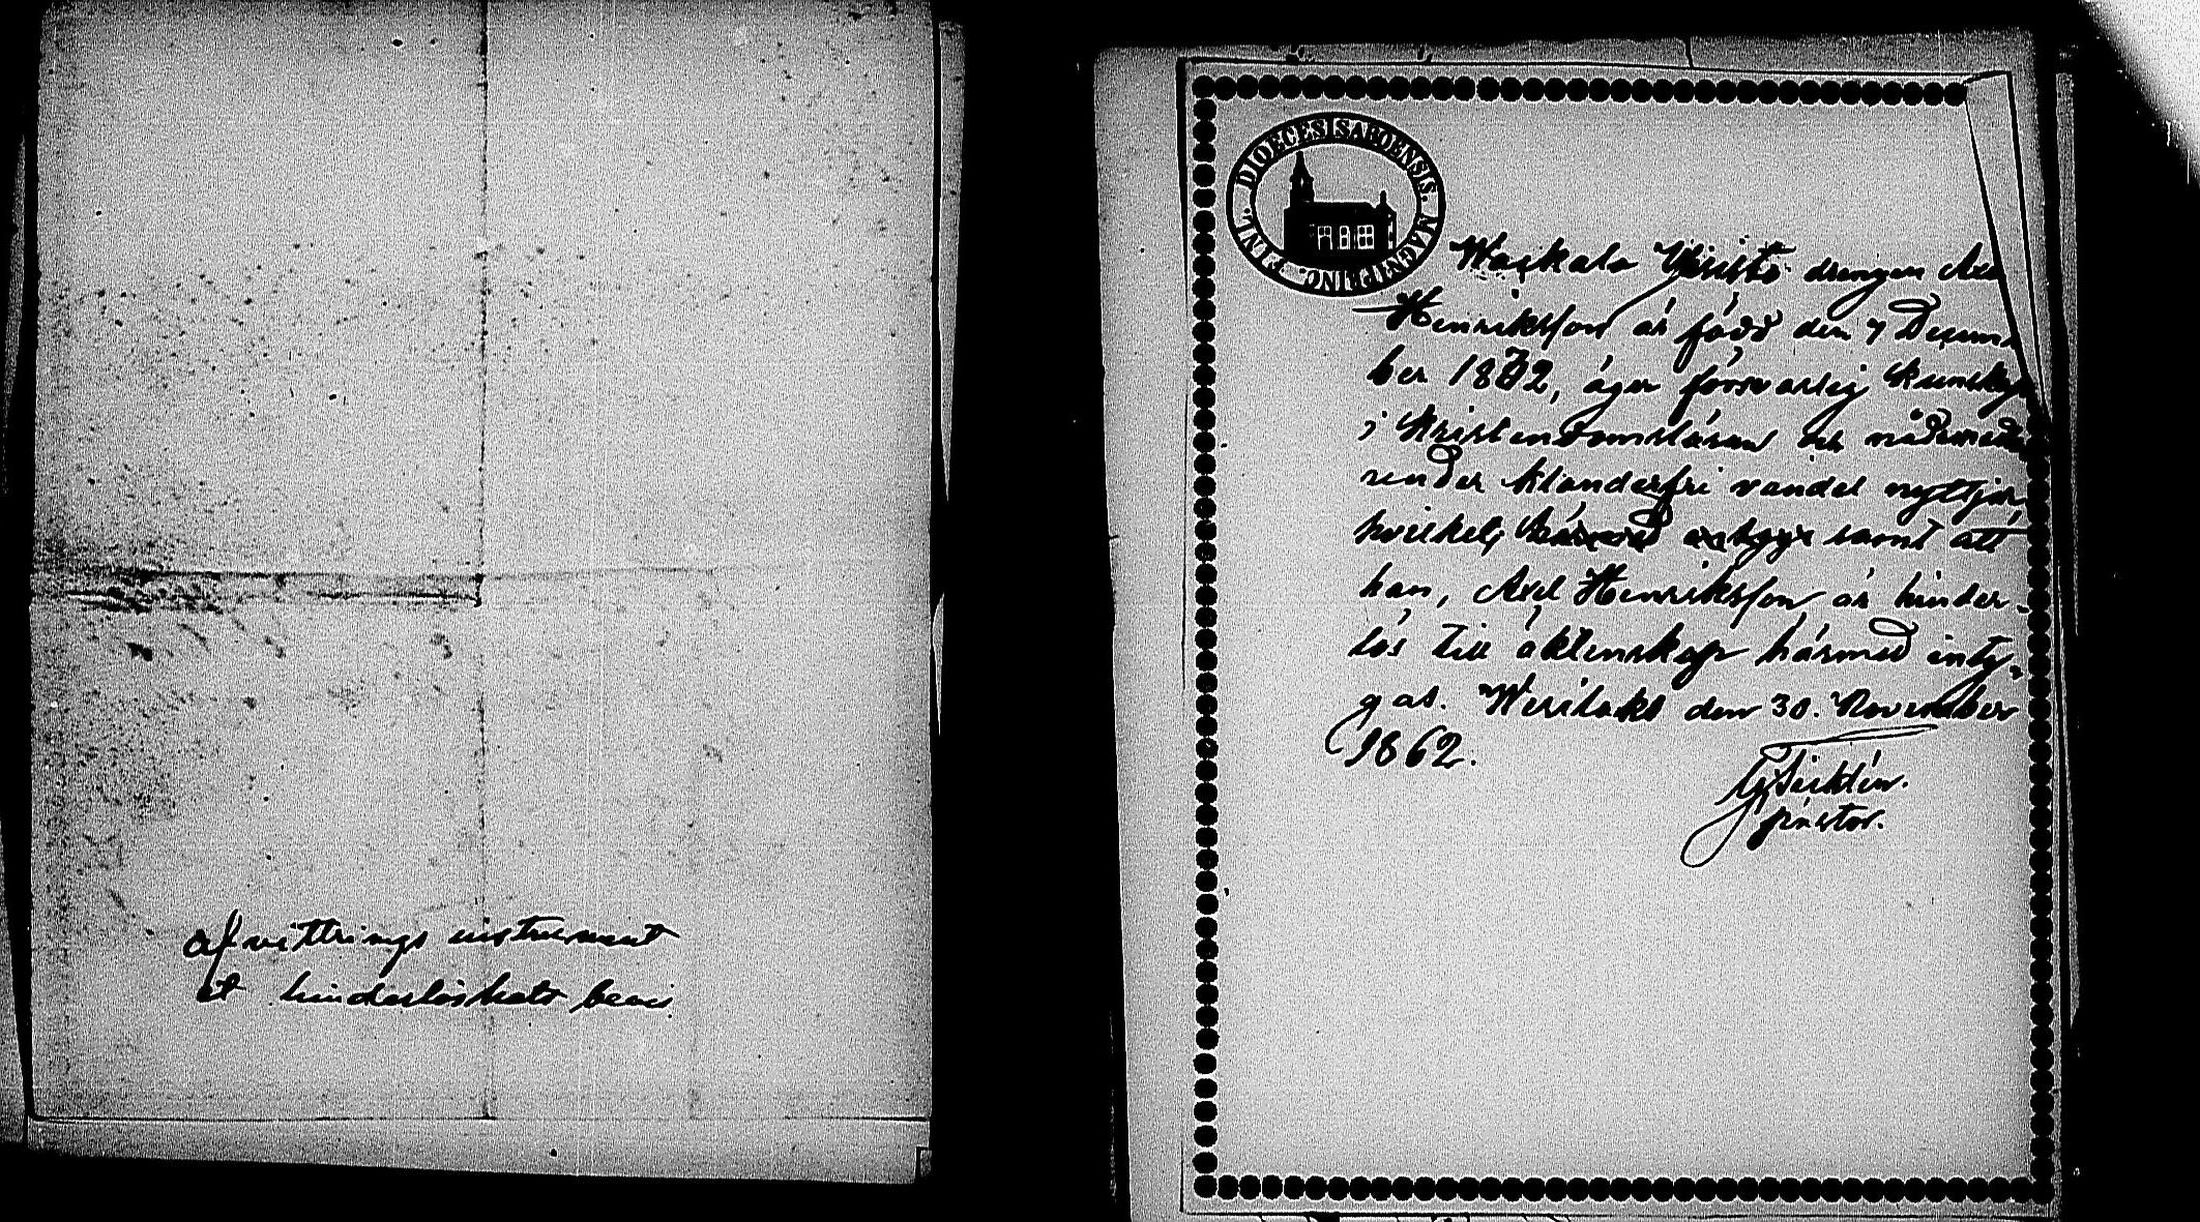 afvittrings instrument
et hinderlöshets bevis.
DIOECESIS ABOENSIS. MAGNI PRINC. FINL.
drengen Axel
Henriksson är född den 7 Decem-
ber 18 2, äger försvarlig kunskap
i kristendomsläran och nådemedlen
under klanderfri vandel nyttjar,
hvilket samt att
han, Axel Henriksson är hinder-
lös till äktenskap härmed inty-
gas. den 30. November
1862.
pastor.